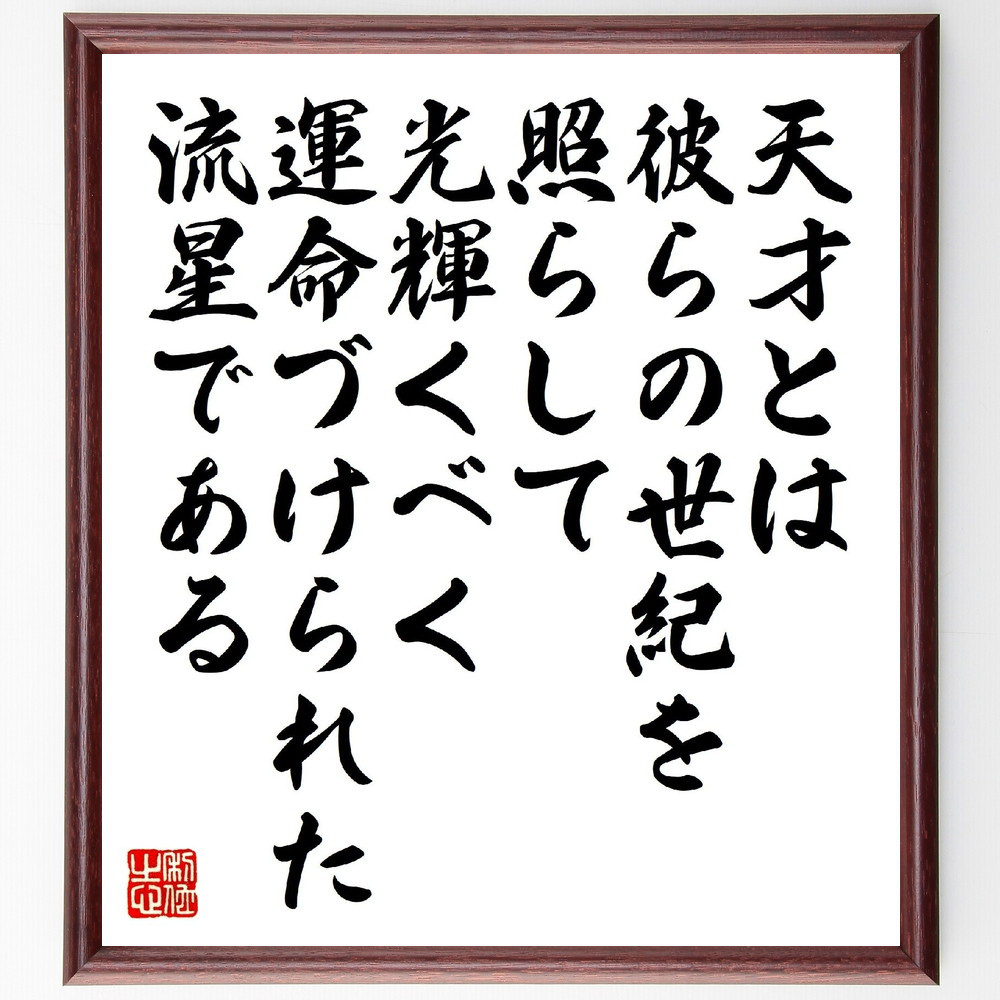 天才とは
彼らの世紀を
照らして
光輝くべく
運命づけられた
流星である